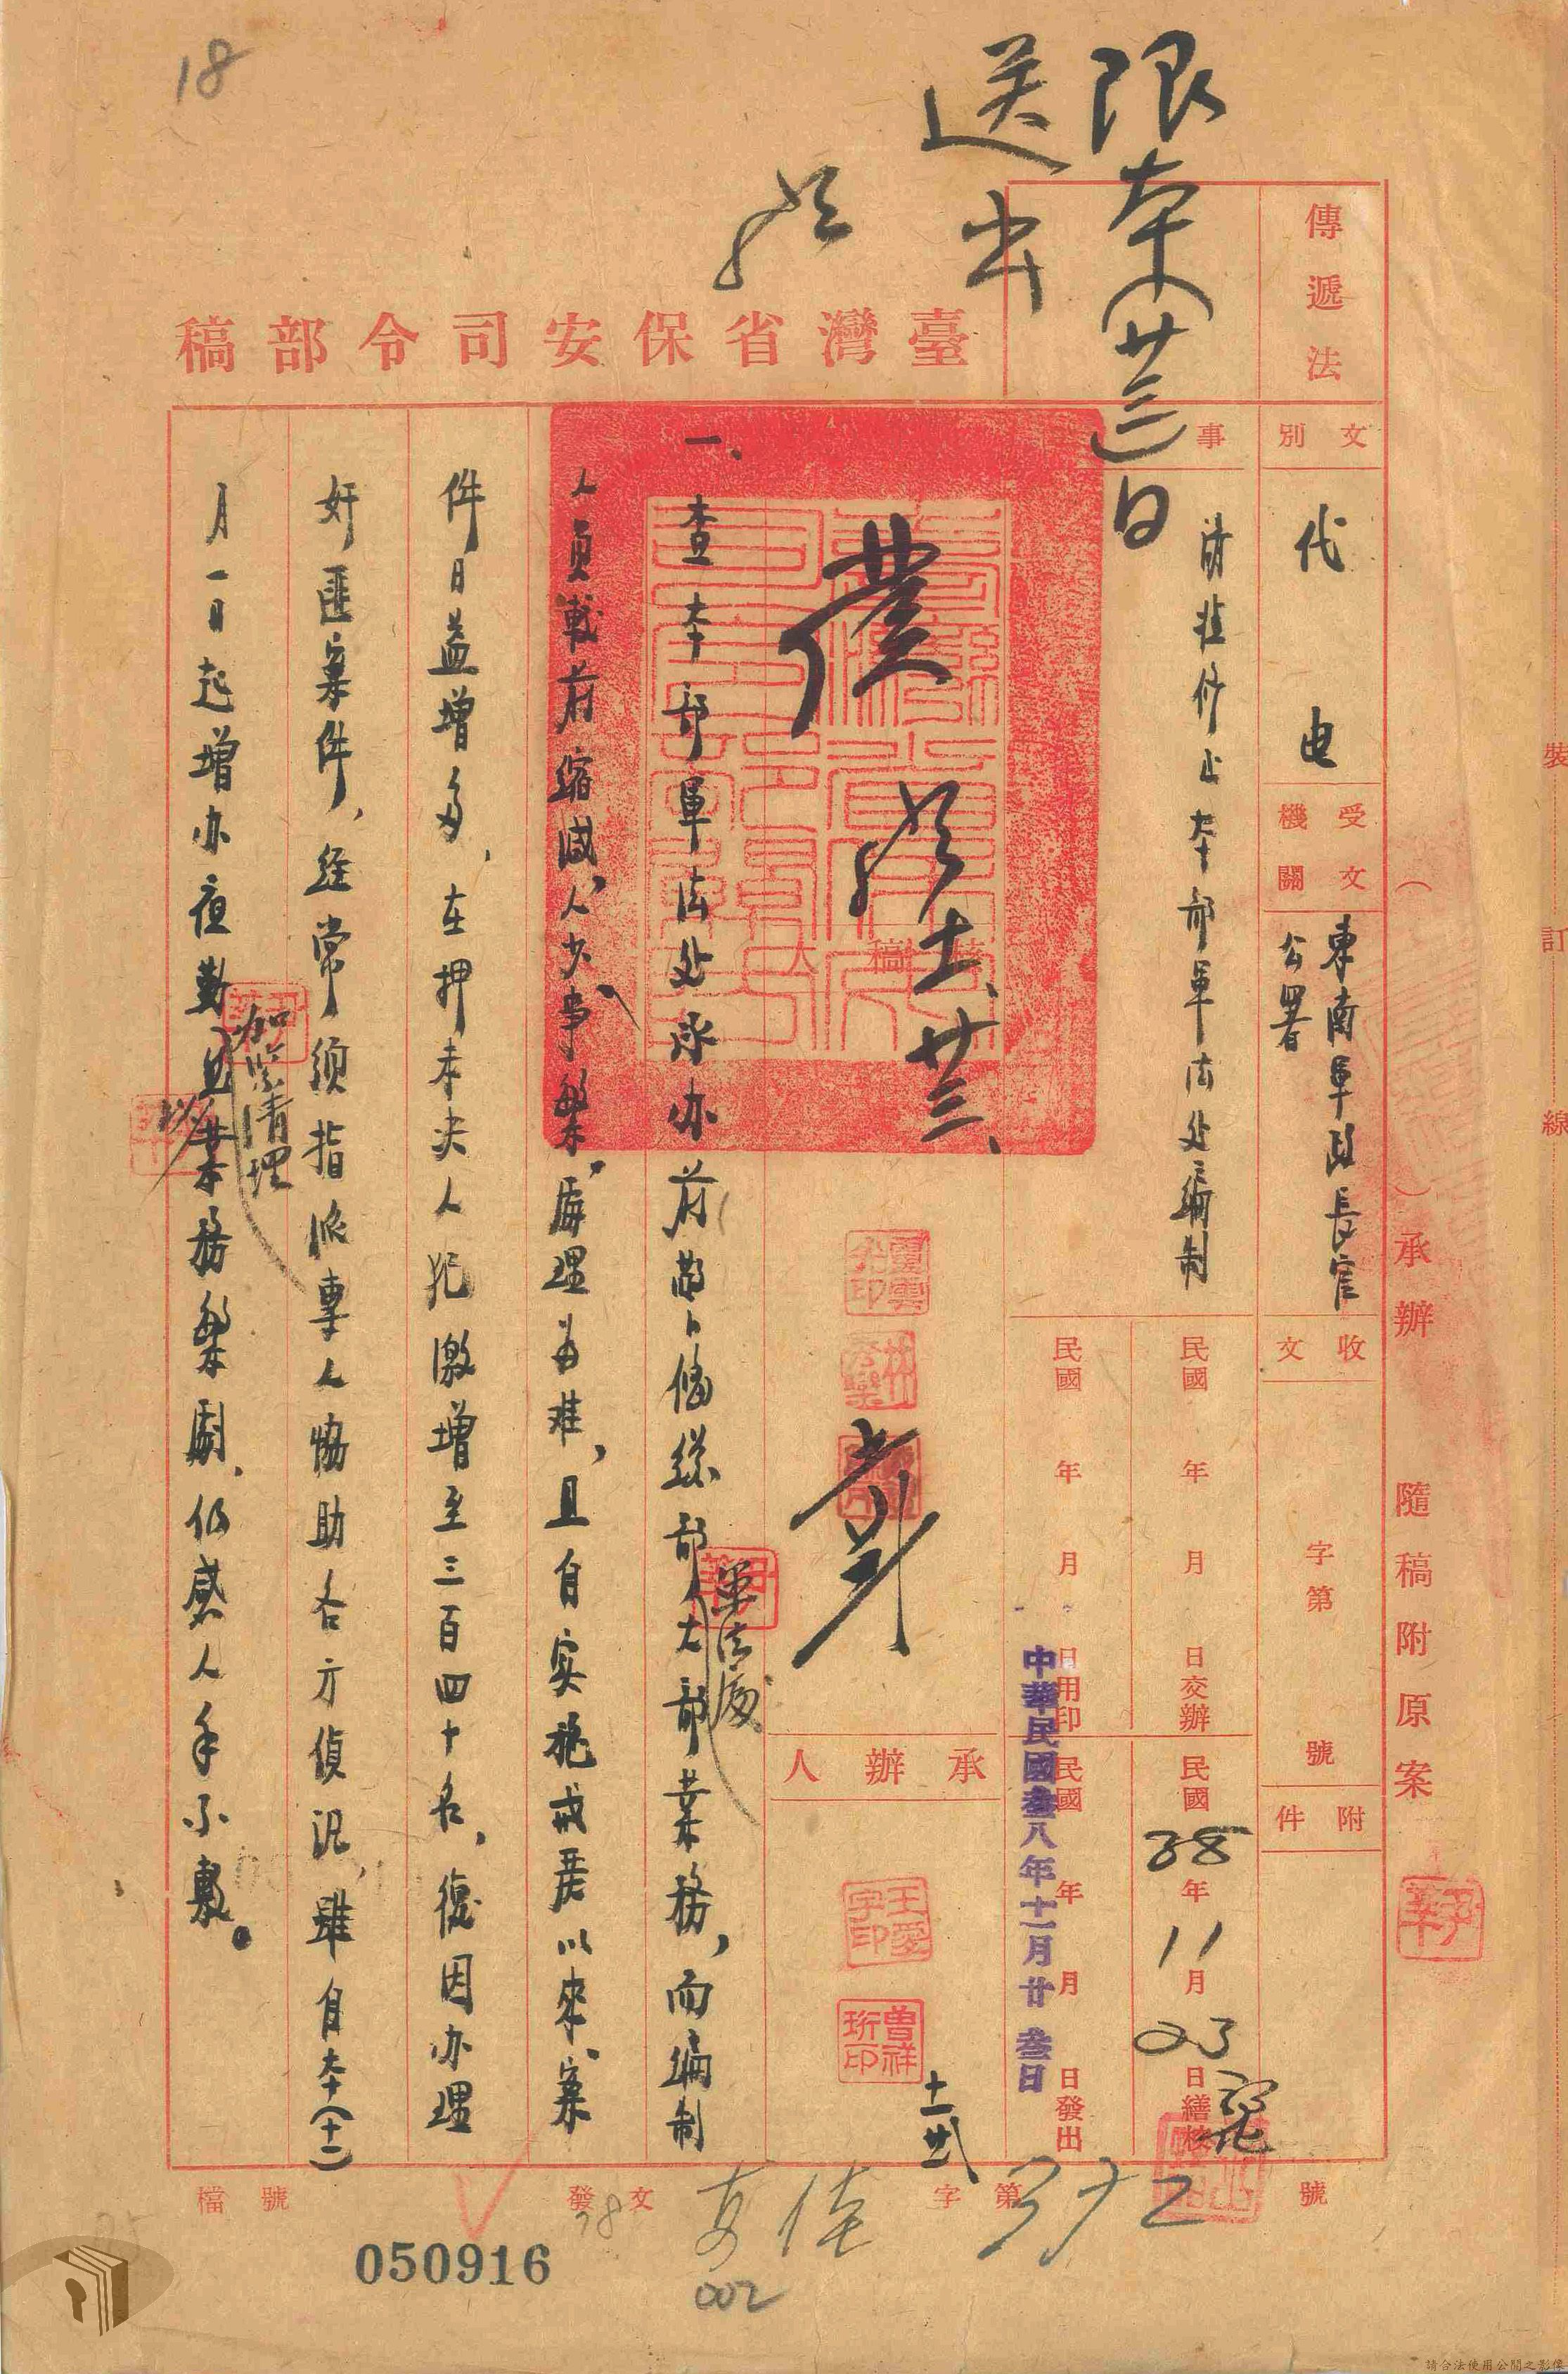 18
限本(廿三)日
送出
臺灣省保安司令部稿
傳遞法
文別
代電
受文機關
東南軍政長官公署
收文
字第
號
附件
事
請准修正本部軍法处編制
民國
年
月
日交辦
民國
38
年
11
月
23
日繕校
民國
年
月
日用印
民國
年
月
日發出
中華民國叁八年十一月廿叁日
核稿人
十一、廿三、
承辦人
王愛字印
曾祥珩印
十一廿弍
一、查本部軍法处承办前警備總部軍法處大部業務,而編制
人員較前縮減,人少事繁,處理為难,且自实施戒严以來,案
件日益增多,在押未决人犯激增至三百四十名,復因办理
奸匪案件,经常须指派專人協助各方偵訊,雖自本(十一)
月一日起增办夜勤加紧清理
業務繁劇,仍感人手不敷。
(
)
承辦
隨稿附原案
裝
訂
線
檔號
發文
字第
號
572
050916
002
請合法使用公開之影像